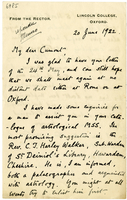 FROM THE RECTOR.
LINCOLN COLLEGE,
OXFORD.
20 June 1922
My dear Cumont,
I was glad to have your letter
of the 24th May, and can still hope
that we shall meet again at no
distant date either at Rome or at
Oxford.
I have made some inquiries for
a man to assist you in your cata-
logue of astrological MSS. The
most promising suggestion is the
Rev. C. T. Harley Walker, Sub-Warden
of St Deiniol's Library, Hawarden,
Chester. He is, I am informed,
both a palaeographer and acquainted
with astrology. You might at all
events try to enlist him first